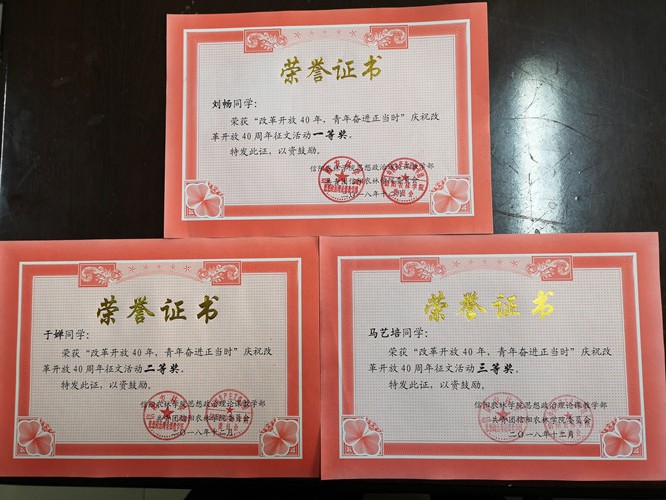 荣誉证书
刘畅同学：
荣获“改革开放40年，青年奋进正当时”庆祝改
革开放40周年征文活动一等奖。
特发此证，以资鼓励。
信阳农林学院思想政治理论课教学部
共青团信阳农林学院委员会
二〇一八年十二月
荣誉证书
于婵同学：
荣获“改革开放40年，青年奋进正当时”庆祝改
革开放40周年征文活动二等奖。
特发此证，以资鼓励。
信阳农林学院思想政治理论课教学部
共青团信阳农林学院委员会
二〇一八年十二月
荣誉证书
马艺培同学：
荣获“改革开放40年，青年奋进正当时”庆祝改
革开放40周年征文活动三等奖。
特发此证，以资鼓励。
信阳农林学院思想政治理论课教学部
共青团信阳农林学院委员会
二〇一八年十二月